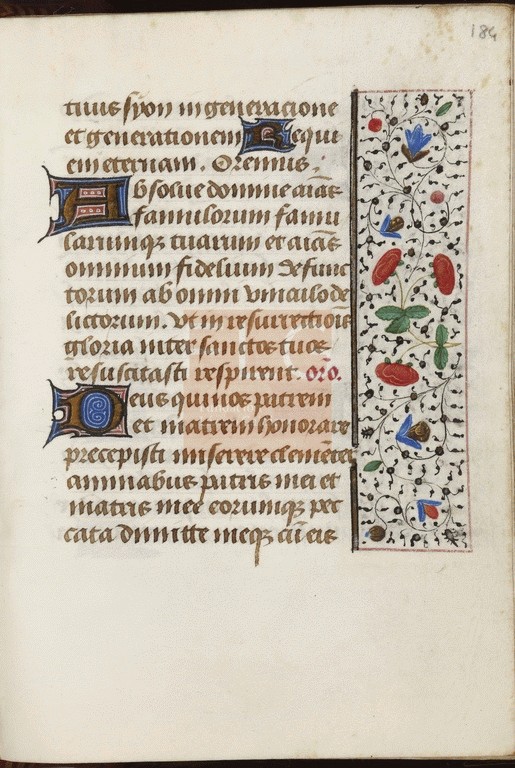 184
tuus syon in generacione
et generationem Requi
em eternam. Oremus.
Absolue domine aīas
famulorum famu
larumqꝫ tuarum et aīas
omnium fidelium defunc
torum ab omni vinculo de
lictorum. Vt in resurrectiōis
gloria inter sanctos tuos
resuscitasti respirent. oro.
Deus qui nos patrem
et matrem honorare
precepisti miserere clemēter
animabus patris mei et
matris mee eorumqꝫ pec
cata dimitte meqꝫ cū eis